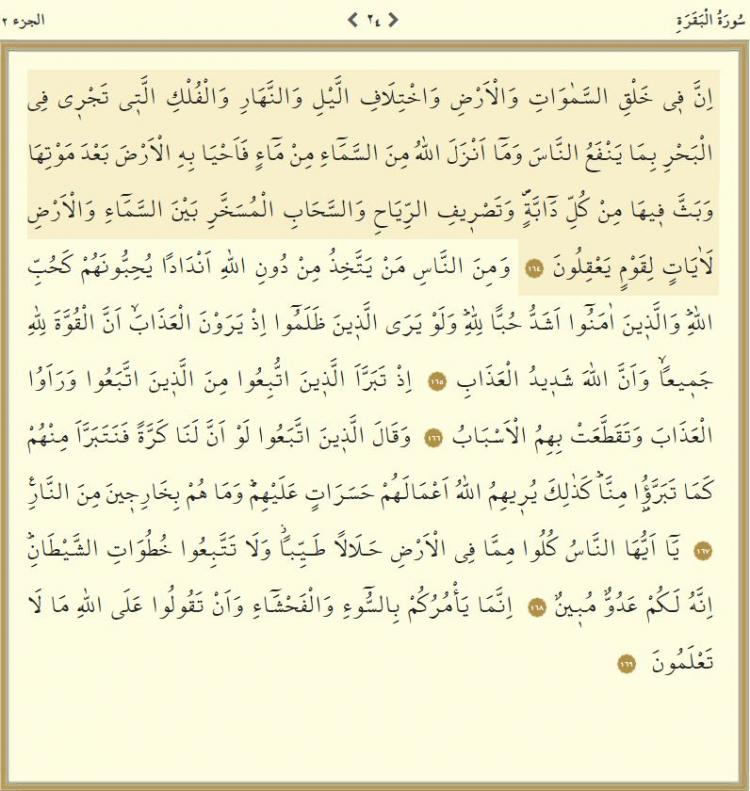 سُورَةُ الْبَقَرَةِ ٢٤ الجزء ٢
اِنَّ ف۪ي خَلْقِ السَّمٰوَاتِ وَالْاَرْضِ وَاخْتِلَافِ الَّيْلِ وَالنَّهَارِ وَالْفُلْكِ الَّت۪ي تَجْر۪ي فِي
الْبَحْرِ بِمَا يَنْفَعُ النَّاسَ وَمَٓا اَنْزَلَ اللّٰهُ مِنَ السَّمَٓاءِ مِنْ مَٓاءٍ فَاَحْيَا بِهِ الْاَرْضَ بَعْدَ مَوْتِهَا
وَبَثَّ ف۪يهَا مِنْ كُلِّ دَٓابَّةٍۖ وَتَصْر۪يفِ الرِّيَاحِ وَالسَّحَابِ الْمُسَخَّرِ بَيْنَ السَّمَٓاءِ وَالْاَرْضِ
لَاٰيَاتٍ لِقَوْمٍ يَعْقِلُونَ ١٦٤ وَمِنَ النَّاسِ مَنْ يَتَّخِذُ مِنْ دُونِ اللّٰهِ اَنْدَادًا يُحِبُّونَهُمْ كَحُبِّ
اللّٰهِۜ وَالَّذ۪ينَ اٰمَنُٓوا اَشَدُّ حُبًّا لِلّٰهِۜ وَلَوْ يَرَى الَّذ۪ينَ ظَلَمُٓوا اِذْ يَرَوْنَ الْعَذَابَۙ اَنَّ الْقُوَّةَ لِلّٰهِ
جَم۪يعًاۙ وَاَنَّ اللّٰهَ شَد۪يدُ الْعَذَابِ ١٦٥ اِذْ تَبَرَّاَ الَّذ۪ينَ اتُّبِعُوا مِنَ الَّذ۪ينَ اتَّبَعُوا وَرَاَوُا
الْعَذَابَ وَتَقَطَّعَتْ بِهِمُ الْاَسْبَابُ ١٦٦ وَقَالَ الَّذ۪ينَ اتَّبَعُوا لَوْ اَنَّ لَنَا كَرَّةً فَنَتَبَرَّاَ مِنْهُمْ
كَمَا تَبَرَّؤُ۫ا مِنَّاۜ كَذٰلِكَ يُر۪يهِمُ اللّٰهُ اَعْمَالَهُمْ حَسَرَاتٍ عَلَيْهِمْۜ وَمَا هُمْ بِخَارِج۪ينَ مِنَ النَّارِ۟
١٦٧ يَٓا اَيُّهَا النَّاسُ كُلُوا مِمَّا فِي الْاَرْضِ حَلَالًا طَيِّبًاۘ وَلَا تَتَّبِعُوا خُطُوَاتِ الشَّيْطَانِۜ
اِنَّهُ لَكُمْ عَدُوٌّ مُب۪ينٌ ١٦٨ اِنَّمَا يَأْمُرُكُمْ بِالسُّٓوءِ وَالْفَحْشَٓاءِ وَاَنْ تَقُولُوا عَلَى اللّٰهِ مَا لَا
تَعْلَمُونَ ١٦٩